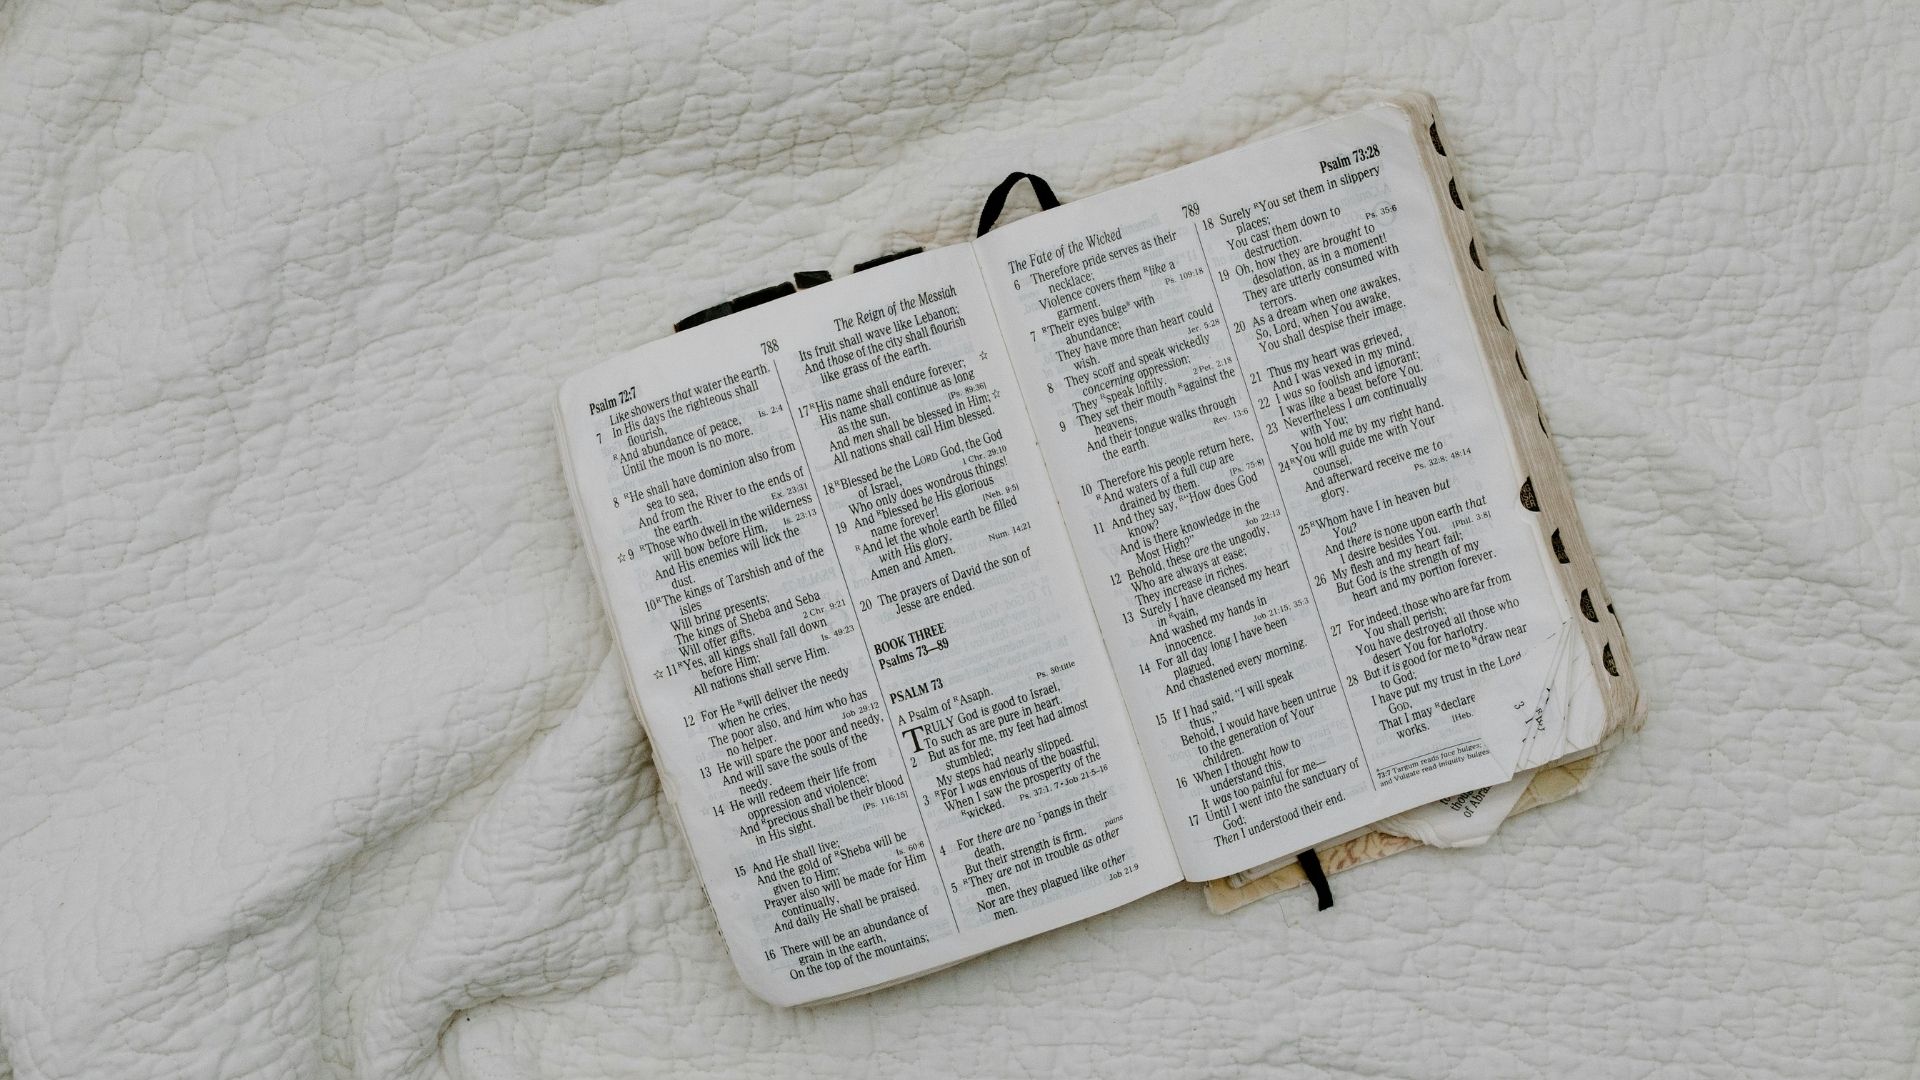 Psalm 72:7
788
Like showers that water the earth.
7 In His days the righteous shall
flourish,
ᴿAnd abundance of peace, Is. 2:4
Until the moon is no more.
8 ᴿHe shall have dominion also from
sea to sea,
And from the River to the ends of
the earth. Ex. 23:31
☆9 ᴿThose who dwell in the wilderness
will bow before Him, Is. 23:13
And His enemies will lick the
dust.
10ᴿThe kings of Tarshish and of the
isles
Will bring presents;
The kings of Sheba and Seba
Will offer gifts. 2 Chr. 9:21
☆11ᴿYes, all kings shall fall down
before Him; Is. 49:23
All nations shall serve Him.
12 For He ᴿwill deliver the needy
when he cries,
The poor also, and him who has
no helper. Job 29:12
13 He will spare the poor and needy,
And will save the souls of the
needy.
14 He will redeem their life from
oppression and violence;
And ᴿprecious shall be their blood
in His sight. [Ps. 116:15]
15 And He shall live;
And the gold of ᴿSheba will be
given to Him; Is. 60:6
Prayer also will be made for Him
continually,
And daily He shall be praised.
16 There will be an abundance of
grain in the earth,
On the top of the mountains;
The Reign of the Messiah
Its fruit shall wave like Lebanon;
And those of the city shall flourish
like grass of the earth.
17ᴿHis name shall endure forever; ☆
His name shall continue as long
as the sun. [Ps. 89:36]
And men shall be blessed in Him; ☆
All nations shall call Him blessed.
18ᴿBlessed be the LORD God, the God
of Israel, 1 Chr. 29:10
Who only does wondrous things!
19 And ᴿblessed be His glorious
name forever! [Neh. 9:5]
ᴿAnd let the whole earth be filled
with His glory.
Amen and Amen. Num. 14:21
20 The prayers of David the son of
Jesse are ended.
BOOK THREE
Psalms 73—89
PSALM 73
A Psalm of ᴿAsaph. Ps. 50:title
TRULY God is good to Israel,
To such as are pure in heart.
2 But as for me, my feet had almost
stumbled;
My steps had nearly slipped.
3 ᴿFor I was envious of the boastful,
When I saw the prosperity of the
ᴿwicked. Ps. 37:1, 7 · Job 21:5–16
4 For there are no ᵀpangs in their
death, pains
But their strength is firm.
5 ᴿThey are not in trouble as other
men,
Nor are they plagued like other
men. Job 21:9
The Fate of the Wicked
789
6 Therefore pride serves as their
necklace;
Violence covers them ᴿlike a
garment. Ps. 109:18
7 ᴿTheir eyes bulge* with
abundance;
They have more than heart could
wish. Jer. 5:28
8 They scoff and speak wickedly
concerning oppression;
They ᴿspeak loftily. 2 Pet. 2:18
9 They set their mouth ᴿagainst the
heavens,
And their tongue walks through
the earth. Rev. 13:6
10 Therefore his people return here,
ᴿAnd waters of a full cup are
drained by them. [Ps. 75:8]
11 And they say, ᴿ"How does God
know?
And is there knowledge in the
Most High?" Job 22:13
12 Behold, these are the ungodly,
Who are always at ease;
They increase in riches.
13 Surely I have cleansed my heart
in ᴿvain,
And washed my hands in
innocence. Job 21:15; 35:3
14 For all day long I have been
plagued,
And chastened every morning.
15 If I had said, "I will speak
thus,"
Behold, I would have been untrue
to the generation of Your
children.
16 When I thought how to
understand this,
It was too painful for me—
17 Until I went into the sanctuary of
God;
Then I understood their end.
Psalm 73:28
18 Surely ᴿYou set them in slippery
places;
You cast them down to
destruction. Ps. 35:6
19 Oh, how they are brought to
desolation, as in a moment!
They are utterly consumed with
terrors.
20 As a dream when one awakes,
So, Lord, when You awake,
You shall despise their image.
21 Thus my heart was grieved,
And I was vexed in my mind.
22 I was so foolish and ignorant;
I was like a beast before You.
23 Nevertheless I am continually
with You;
You hold me by my right hand.
24ᴿYou will guide me with Your
counsel,
And afterward receive me to
glory. Ps. 32:8; 48:14
25ᴿWhom have I in heaven but
You?
And there is none upon earth that
I desire besides You. [Phil. 3:8]
26 My flesh and my heart fail;
But God is the strength of my
heart and my portion forever.
27 For indeed, those who are far from
You shall perish;
You have destroyed all those who
desert You for harlotry.
28 But it is good for me to ᴿdraw near
to God;
I have put my trust in the Lord
GOD,
That I may ᴿdeclare
works. [Heb.
73:7 Targum reads face bulges;
and Vulgate read iniquity bulges
of Abra